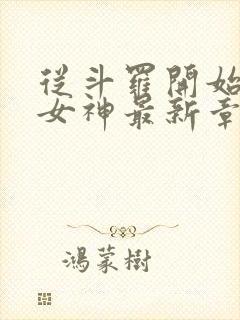 從斗羅開始
女神最新章
鴻蒙樹